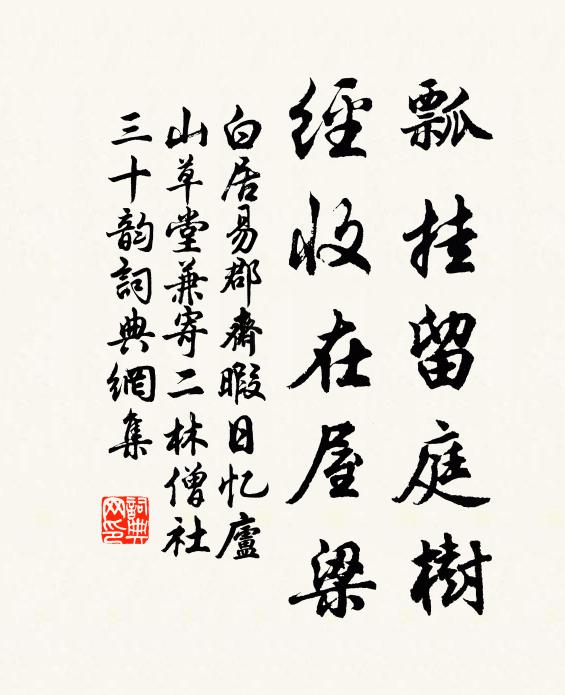 瓢挂留庭樹
經收在屋梁
白居易郡齋暇日忆廬
山草堂兼寄二林僧社
三十韵詞典網集
詞典网印